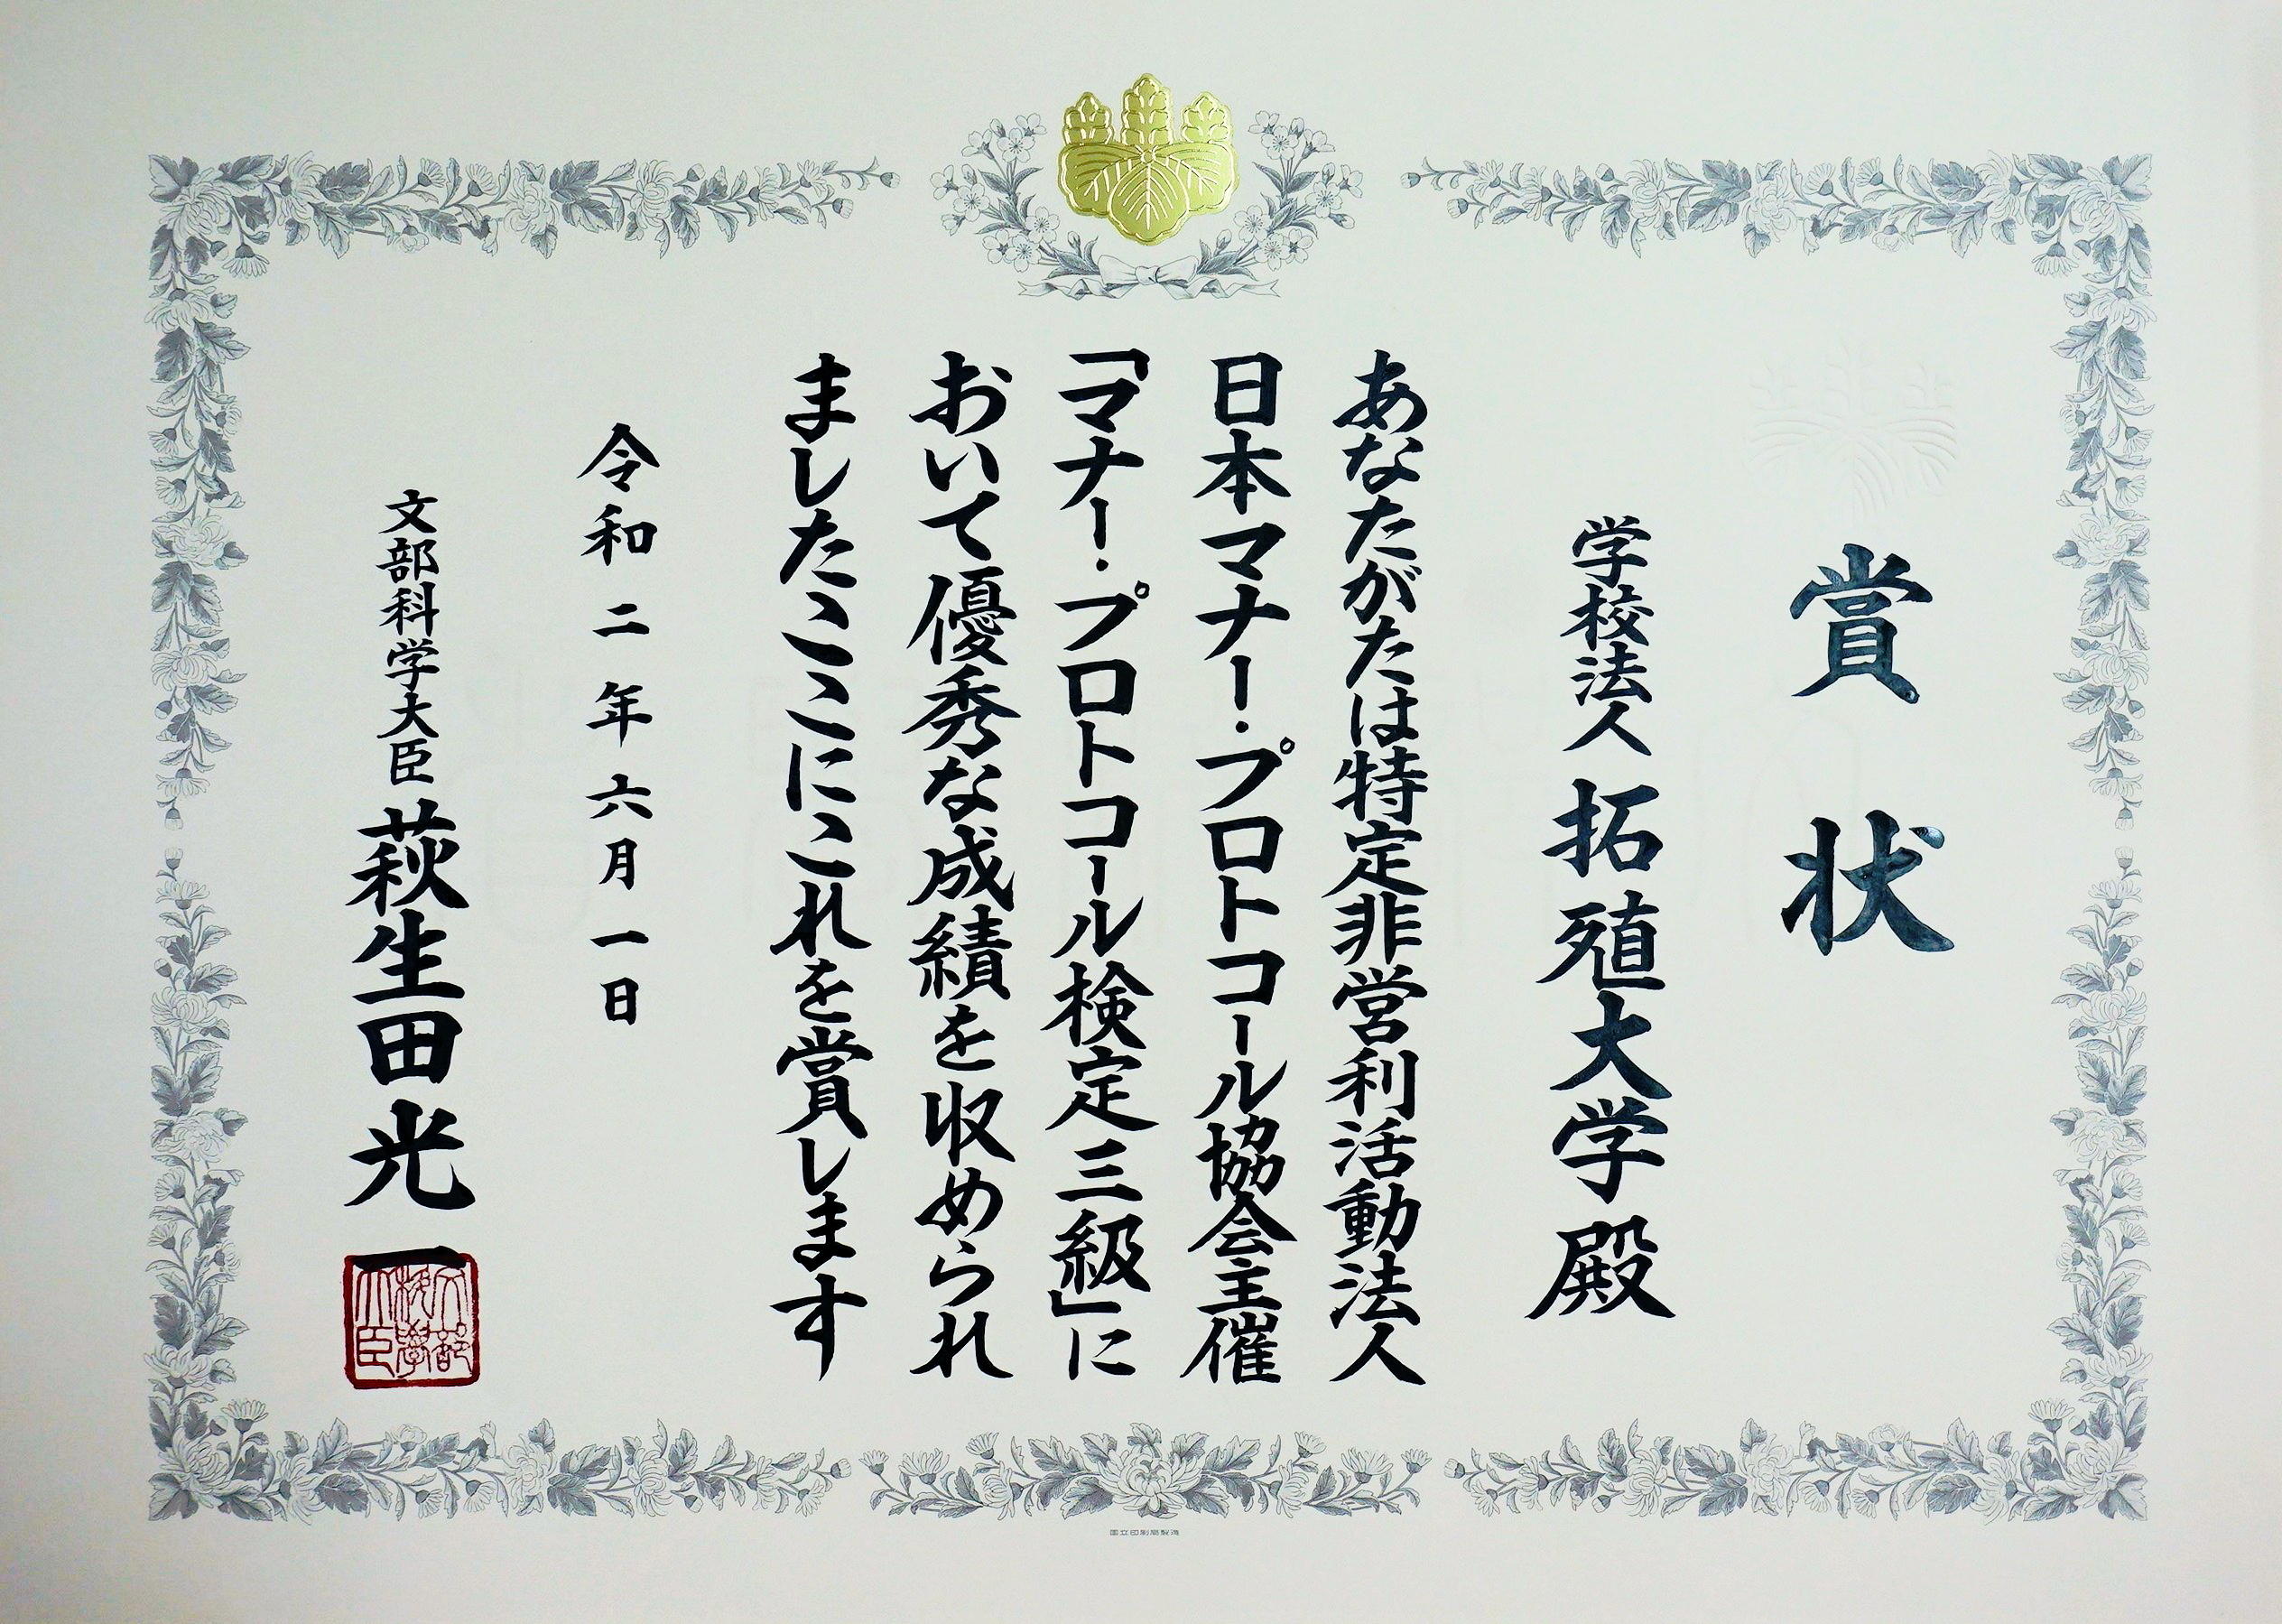 賞状
学校法人 拓殖大学殿
あなたがたは特定非営利活動法人
日本マナー・プロトコール協会主催
「マナー・プロトコール検定三級」に
おいて優秀な成績を収められ
ましたここにこれを賞します
令和二年六月一日
文部科学大臣 萩生田光一
文部科学大臣
国立印刷局製造